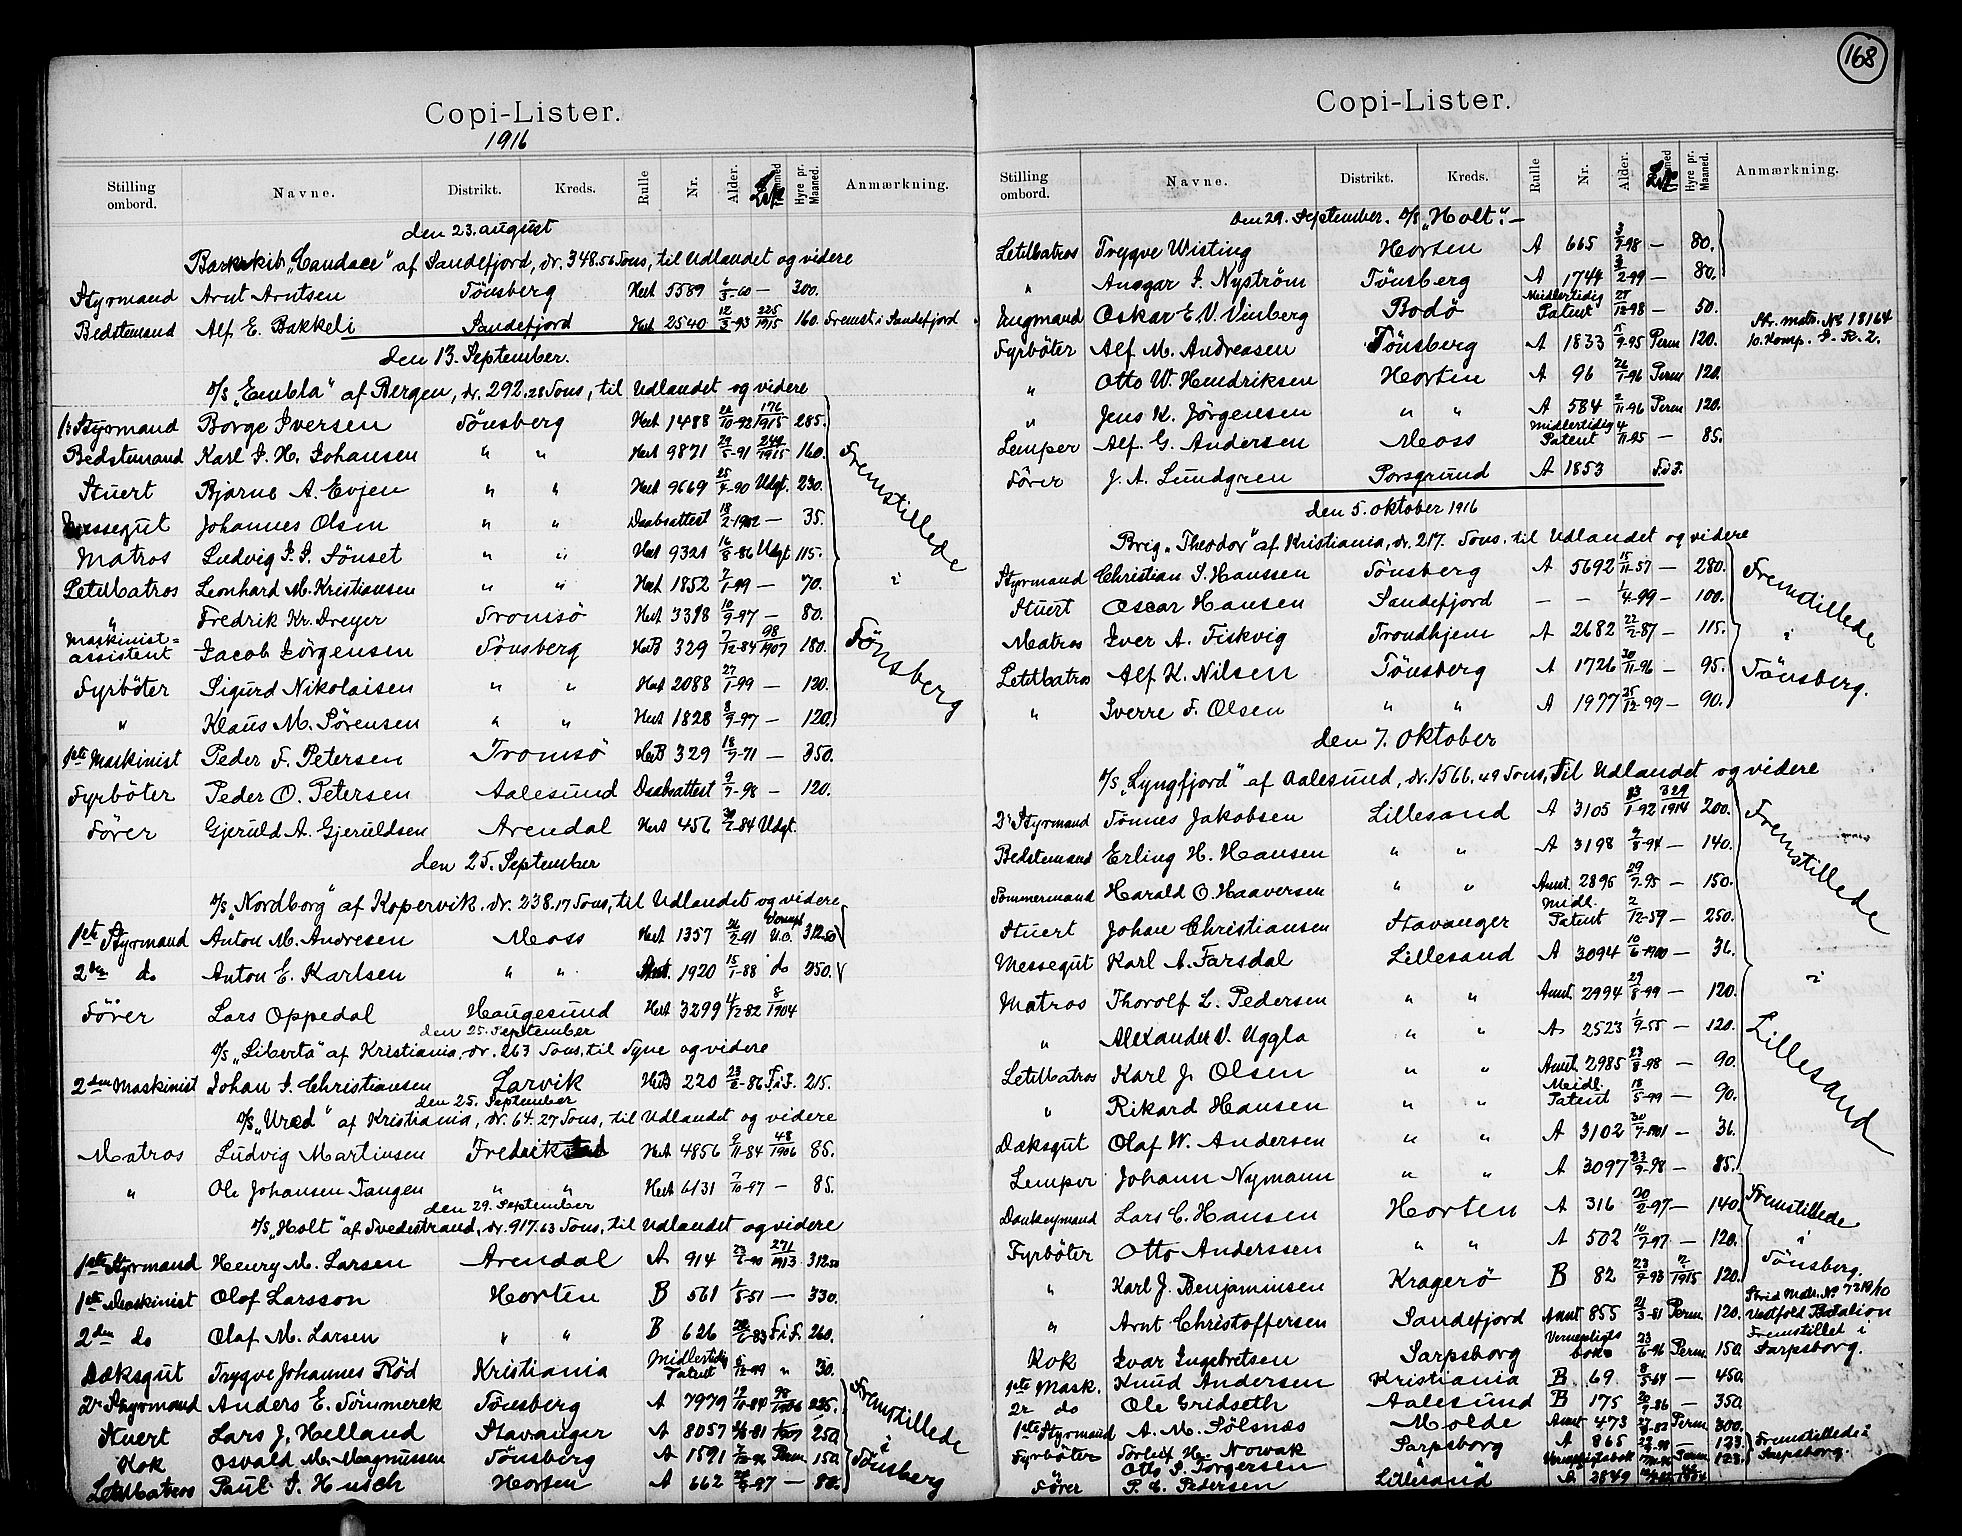 168
Copi-Lister.
1916
Stilling ombord. Navne. Distrikt. Kreds. Rulle Nr. Alder. Hyre pr. Maaned. Anmærkning.
den 23. august
Barkskib „Candace" af Sandefjord, dr. 348.56 Tons, til Udlandet og videre
Styrmand Arnt Arntsen Tönsberg Hert 5589 6/3-60 — 300.
Bedstemand Alf E. Bakkeli Sandefjord Hert 2540 12/3-93 225/1915 160. Fremst. i Sandefjord
den 13. September.
D/S „Embla" af Bergen, dr. 292.28 Tons, til Udlandet og videre
1ste Styrmand Borge Iversen Tönsberg Hert 1488 22/10-92 176/1915 285.
Bedstemand Karl J. H. Johansen " " Hert 9871 29/5-91 249/1915 160.
Stuert Bjarne A. Evjen " " Hert 9669 25/7-90 Udgt. 230.
Messegut Johannes Olsen " " Daabsattest 18/2-1902 — 35.
Matros Ludvig J. J. Sönset " " Hert 9321 16/8-86 Udgt. 115.
LetMatros Leonhard M. Kristiansen " " Hert 1852 7/1-99 — 70.
" Fredrik Kr. Dreyer Tromsö Hert 3398 10/9-97 — 80.
Maskinist=assistent Jacob Jörgensen Tönsberg HertB 329 7/12-84 98/1907 180.
Fyrböter Sigurd Nikolaisen " " Hert 2088 27/1-99 — 120.
" Klaus M. Sörensen " " Hert 1828 8/9-97 — 120.
Fremstillede i Tönsberg
1ste Maskinist Peder F. Petersen Tromsö HertB 329 18/7-71 — 350.
Fyrböter Peder O. Petersen Aalesund Daabsattest 9/7-98 — 120.
Förer Gjeruld A. Gjeruldsen Arendal Hert 456 30/2-84 Udgt.
den 25. September
D/S „Nordborg" af Kopervik. dr. 238.17 Tons, til Udlandet og videre
1ste Styrmand Anton M. Andresen Moss Hert 1357 26/2-91 U.O. 312.50
2den do Anton E. Karlsen " " 1920 15/1-88 do 250.
Förer Lars Oppedal Haugesund Hert 3299 4/12-82 8/1904
den 25. September
D/S „Liberta" af Kristiania, dr. 263 Tons, til Tyne og videre
2den Maskinist Johan J. Christiansen Larvik HertB 220 23/2-86 F.i.F. 215.
den 25. September
D/S „Uræd" af Kristiania, dr. 64.27 Tons, til Udlandet og videre
Matros Ludvig Martinsen Fredrikstad Hert 4856 9/11-84 48/1906 85.
" Ole Johansen Tangen " " Hert 6131 7/10-97 — 85.
den 29. September
D/S „Holt" af Tvedestrand, dr. 917.63 Tons, til Udlandet og videre
1ste Styrmand Henry M. Larsen Arendal A 914 23/6-90 271/1913 312.50
1ste Maskinist Olof Larsson Horten B 561 1/5-51 — 330.
2den do Olaf M. Larsen " " B 626 20/6-83 F.i.F. 260.
Dæksgut Trygve Johannes Röd Kristiania Midlertidig Patent 5/12-99 " 30.
2n Styrmand Anders E. Tömmerek Tönsberg A 7979 19/10-84 98/1906 285.
Stuert Lars J. Helland Stavanger A 8057 250.
Kok Osvald M. Magnussen Tönsberg A 1591 Perm 150.
LetMatros Paul J. Husch Horten A 662 — 80.
Fremstillede i Tönsberg
Copi-Lister.
Stilling ombord. Navne. Distrikt. Kreds. Rulle Nr. Alder. Hyre pr. Maaned. Anmærkning.
den 29. September. D/S „Holt". —
LetMatros Trygve Wisting Horten A 665 3/7-98 — 80.
" Ansgar J. Nyström Tönsberg A 1744 3/2-99 — 80.
Jungmand Oskar E. V. Vinberg Bodö Midlertidig Patent 28/12-98 — 50.
Fyrböter Alf M. Andreasen Tönsberg A 1833 15/9-95 Perm 120. Str. matr. No 18164 10. Komp. I. R. 2.
" Otto W. Hendriksen Horten A 96 26/1-96 Perm 120.
" Jens K. Jörgensen " " A 584 2/11-96 Perm 120.
Lemper Alf. G. Andersen Moss Midlertidig Patent 4/11-95 — 85.
Förer J. A. Lundgren Porsgrund A 1853 F.i.F.
den 5. oktober 1916
Brig „Theodor" af Kristiania, dr. 217. Tons, til Udlandet og videre
Styrmand Christian J. Hanssen Tönsberg A 5692 15/11-57 — 280.
Stuert Oscar Hansen Sandefjord — — 1/4-99 — 100.
Matros Iver A. Fiskvig Trondhjem A 2682 22/2-87 — 115.
LetMatros Alf K. Nilsen Tönsberg A 1726 30/11-96 — 95.
" Sverre F. Olsen " " A 1977 25/12-99 — 90.
Fremstillede i Tönsberg.
den 7. oktober
D/S „Lyngfjord" af Aalesund, dr. 1566.49 Tons, Til Udlandet og videre
2n Styrmand Tönnes Jakobsen Lillesand A 3105 23/1-92 329/1914 200.
Bedstemand Erling H. Hansen " " A 3198 9/8-94 — 140.
Tömmermand Harald O. Haaversen " " Annt. 2895 29/7-95 — 150.
Stuert Johan Christiansen Stavanger Midl. Patent 2/12-59 — 250.
Messegut Karl A. Farsdal Lillesand A 3094 10/6-1900 — 36.
Matros Thorolf L. Pedersen " " Annt. 2994 29/8-99 — 120.
" Alexander V. Uggla " " A 2523 1/9-55 — 120.
LetMatros Karl J. Olsen " " Annt. 2985 23/8-98 — 90.
" Rikard Hansen " " Midl. Patent 18/5-99 — 90.
Dæksgut Olaf W. Andersen " " A 3102 30/7-1901 — 36.
Lemper Johann Nymann " " A 3097 23/9-98 — 85.
Fremstillede i Lillesand
Donkeymand Lars C. Hansen Horten A 316 20/2-97 — 140.
Fyrböter Otto Anderssen " " A 502 10/7-97 — 120.
Fremstillede i Tönsberg.
" Karl J. Benjaminsen Kragerö B 82 23/9-93 7/1915 120.
" Arnt Christoffersen Sandefjord Annt 855 21/3-81 Perm. 120. Strid Matr. No 7218/10 Vestfold Batalion
Kok Ivar Ingebretsen Sarpsborg Vernepligts bok 23/6-96 Perm 150. Fremstillet i Sarpsborg.
1ste Mask. Knud Andersen Kristiania B. 69. 8/5-64 — 450.
2r do Ole Gridseth Aalesund B 175 20/7-86 — 350.
1ste Styrmand A. M. Sölsnæs Molde Annt 473 27/8-83 Perm 300.
Fyrböter H. Nowak Sarpsborg A 865 123.
Otto J. Torgersen 123. Fremstillede i Sarpsborg.
Förer P. C. Pedersen Lillesand A 3849